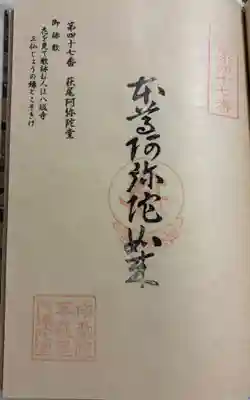 第四十七番
本尊阿弥陀如来
第四十七番 萩尾阿弥陀堂
御詠歌
花を見て歌詠む人は八坂寺
三仏じょうの縁とこそきけ